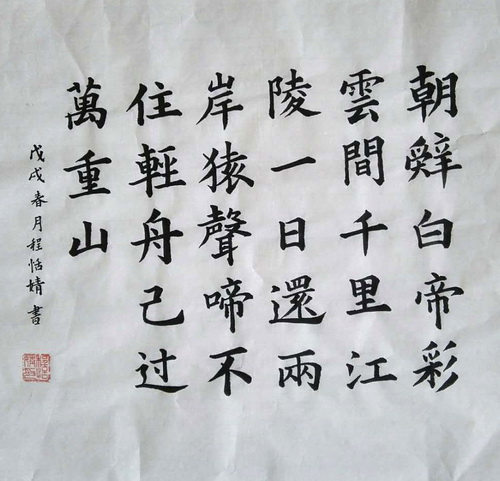 朝辤白帝彩
雲間千里江
陵一日還兩
岸猿聲啼不
住輕舟己过
萬重山
戊戌春月程恬婧書